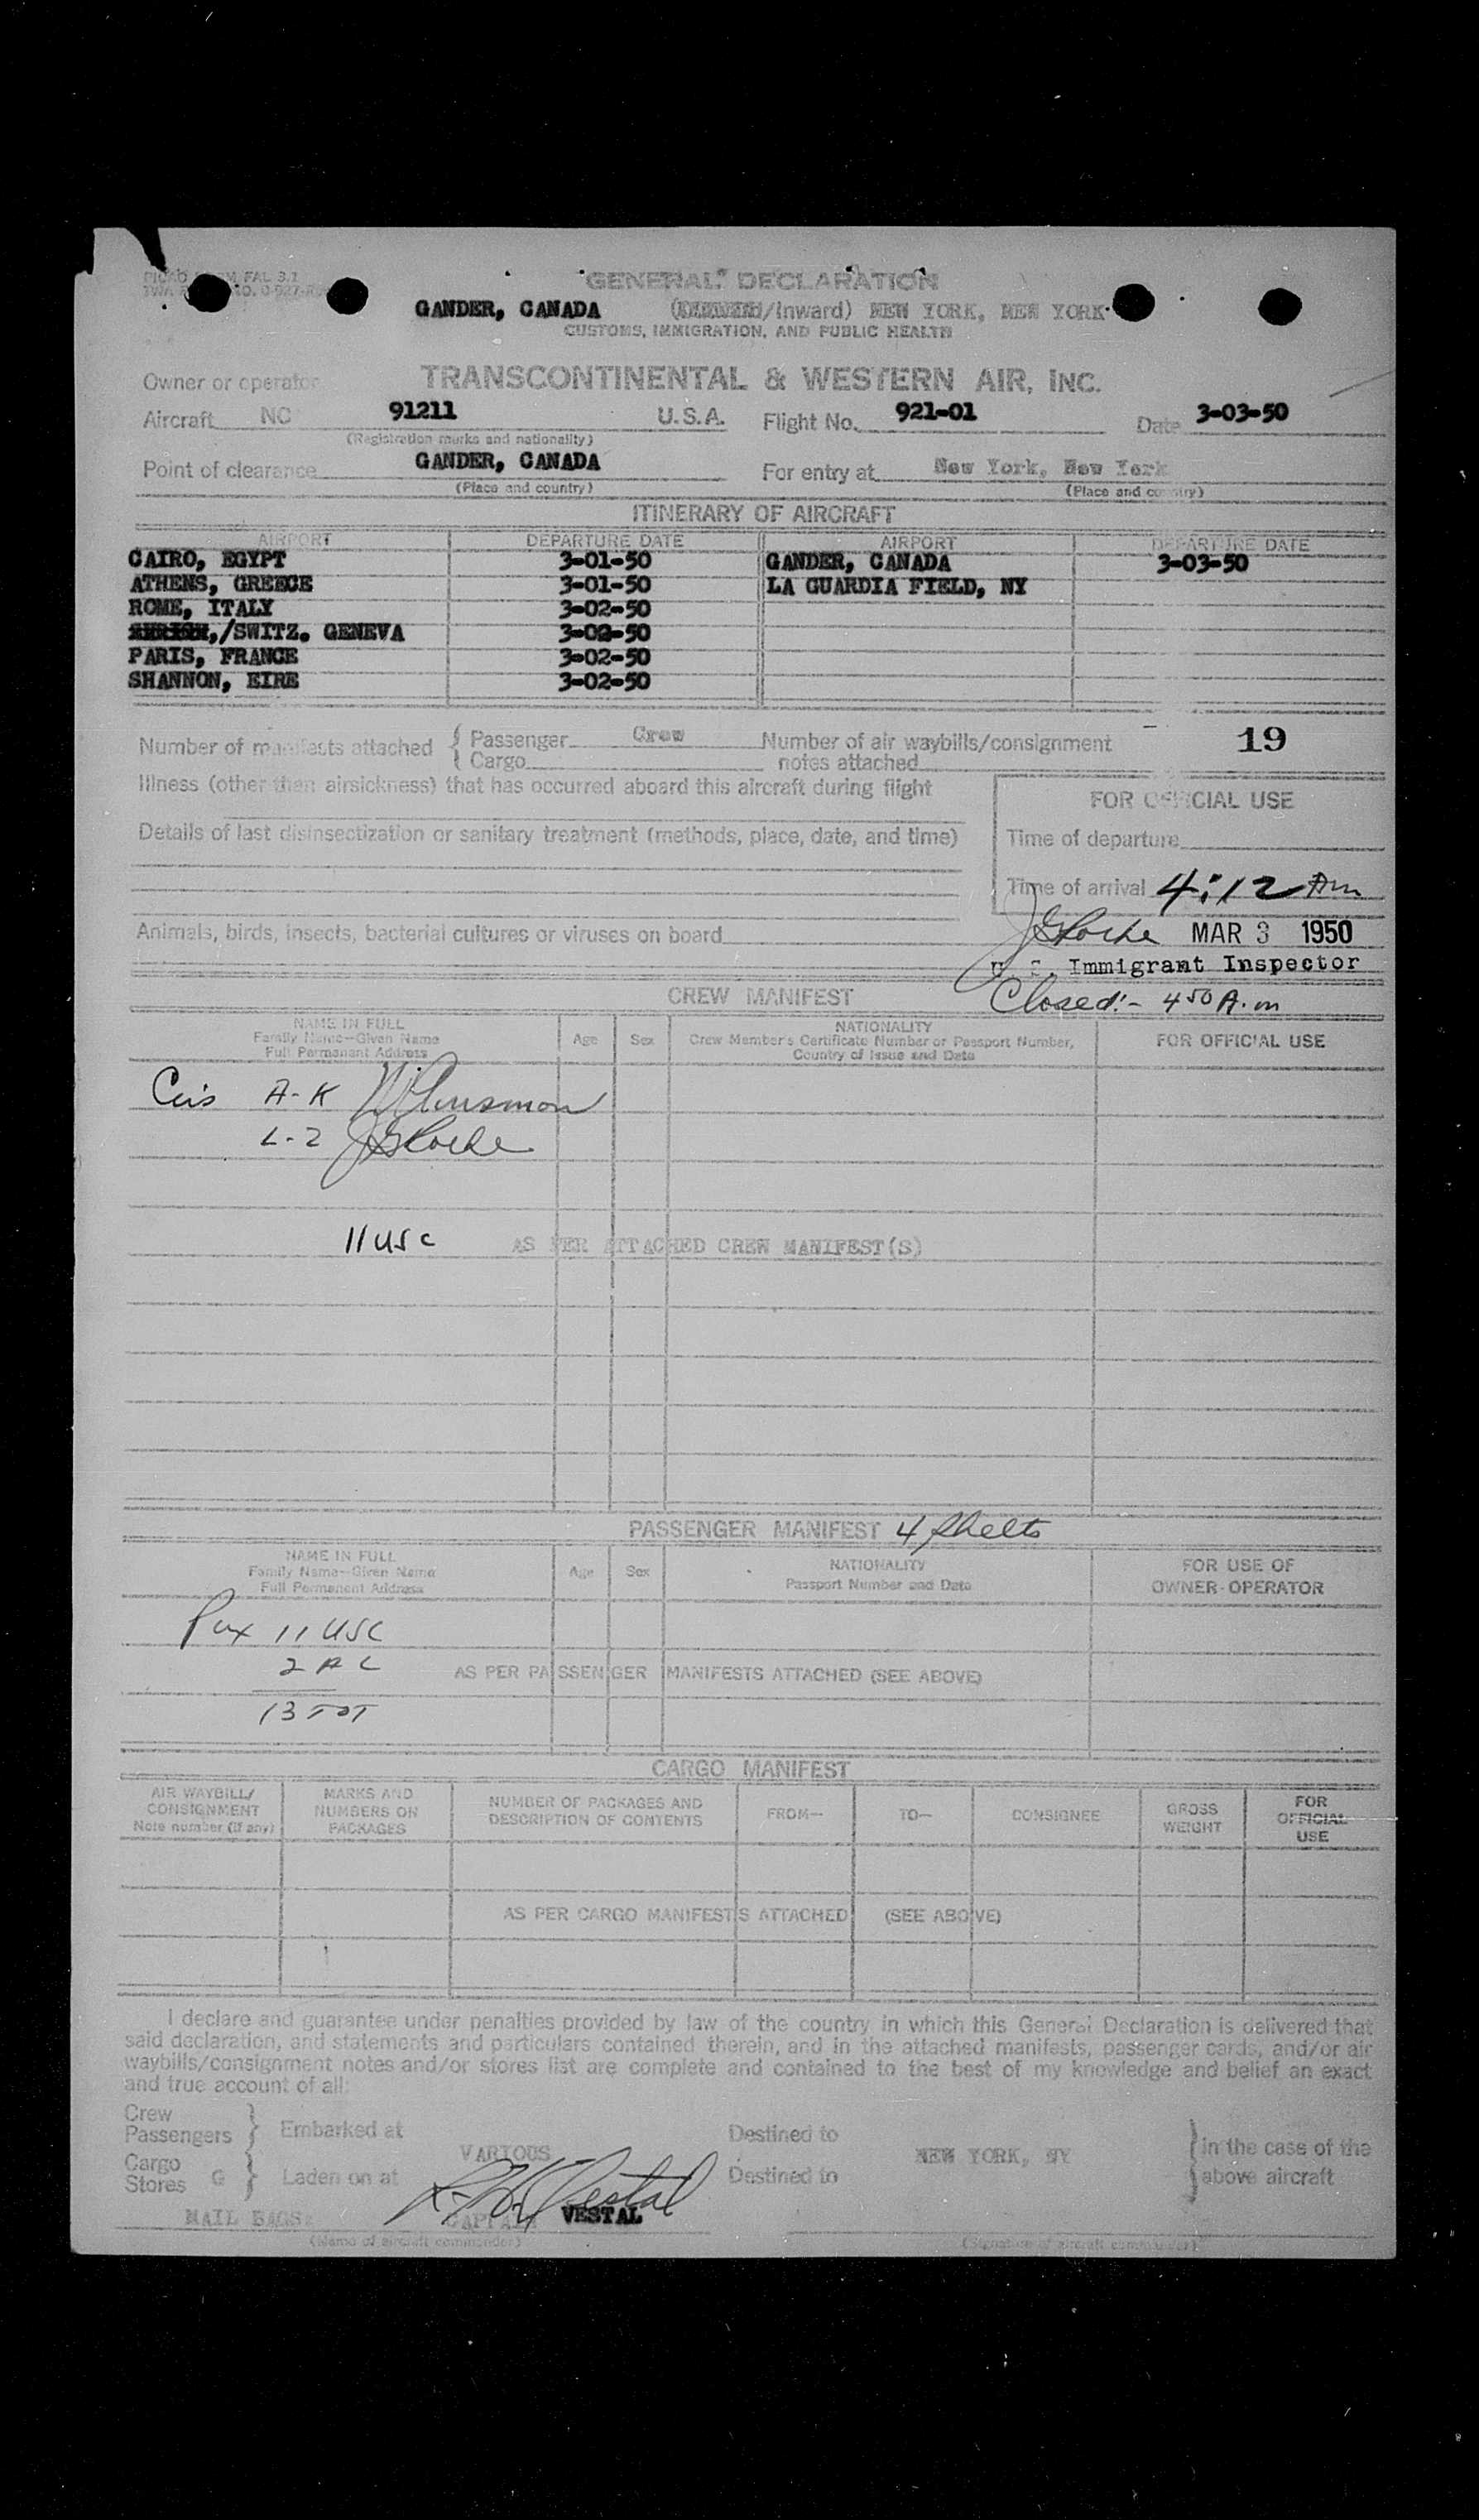 FAL 3.1
GENERAL DECLARATION
GANDER, CANADA (/Inward) NEW YORK, NEW YORK
CUSTOMS, IMMIGRATION, AND PUBLIC HEALTH
Owner or operator TRANSCONTINENTAL & WESTERN AIR, INC.
Aircraft NC 91211 U.S.A. Flight No. 921-01 Date 3-03-50
(Registration marks and nationality)
Point of clearance GANDER, CANADA For entry at New York, New York
(Place and country) (Place and country)
ITINERARY OF AIRCRAFT
AIRPORT DEPARTURE DATE AIRPORT DEPARTURE DATE
CAIRO, EGYPT 3-01-50 GANDER, CANADA 3-03-50
ATHENS, GREECE 3-01-50 LA GUARDIA FIELD, NY
ROME, ITALY 3-02-50
/SWITZ. GENEVA 3-02-50
PARIS, FRANCE 3-02-50
SHANNON, EIRE 3-02-50
Number of manifests attached { Passenger Crew Number of air waybills/consignment 19
{ Cargo notes attached
Illness (other than airsickness) that has occurred aboard this aircraft during flight
FOR OFFICIAL USE
Details of last disinsectization or sanitary treatment (methods, place, date, and time) Time of departure
Time of arrival 4:12 Am
Animals, birds, insects, bacterial cultures or viruses on board MAR 3 1950
U. S. Immigrant Inspector
CREW MANIFEST Closed:- 4 50 A.m
NAME IN FULL NATIONALITY
Family Name—Given Name Age Sex Crew Member's Certificate Number or Passport Number, FOR OFFICIAL USE
Full Permanent Address Country of Issue and Date
A-K
L-Z
11 USC AS PER ATTACHED CREW MANIFEST(S)
PASSENGER MANIFEST 4 Sheets
NAME IN FULL NATIONALITY FOR USE OF
Family Name—Given Name Age Sex Passport Number and Date OWNER-OPERATOR
Full Permanent Address
Pax 11 USC
2 AC AS PER PASSENGER MANIFESTS ATTACHED (SEE ABOVE)
13 TOT
CARGO MANIFEST
AIR WAYBILL/ MARKS AND NUMBER OF PACKAGES AND FROM— TO— CONSIGNEE GROSS FOR
CONSIGNMENT NUMBERS ON DESCRIPTION OF CONTENTS WEIGHT OFFICIAL
Note number (if any) PACKAGES USE
AS PER CARGO MANIFESTS ATTACHED (SEE ABOVE)
I declare and guarantee under penalties provided by law of the country in which this General Declaration is delivered that
said declaration, and statements and particulars contained therein, and in the attached manifests, passenger cards, and/or air
waybills/consignment notes and/or stores list are complete and contained to the best of my knowledge and belief an exact
and true account of all:
Crew
Passengers } Embarked at VARIOUS Destined to NEW YORK, NY } in the case of the
Cargo
Stores G } Laden on at Destined to } above aircraft
MAIL BAGS: CAPTAIN VESTAL
(Name of aircraft commander) (Signature of aircraft commander)